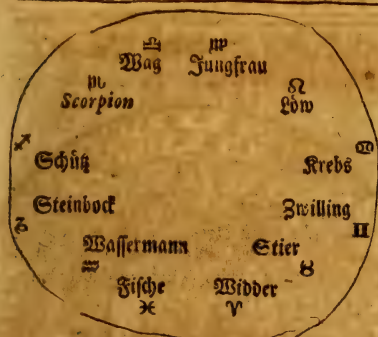 ♎ ♍
Wag Jungfrau
♏ ♌
Scorpion Löw
♐ ♋
Schütz Krebs
Steinbock Zwilling
♑ ♊
Wassermann Stier
♒ ♉
Fische Widder
♓ ♈